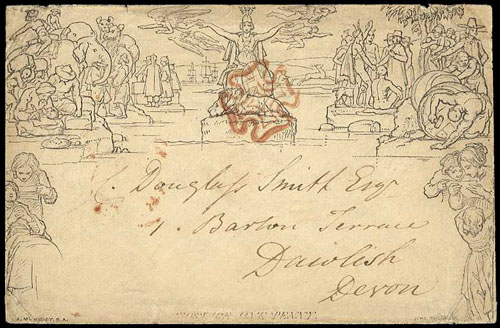 C. Douglass Smith Esqr
1. Barton Terrace
Dawlish
Devon
POSTAGE ONE PENNY.
W. MULREADY, R.A.
JOHN THOMPSON